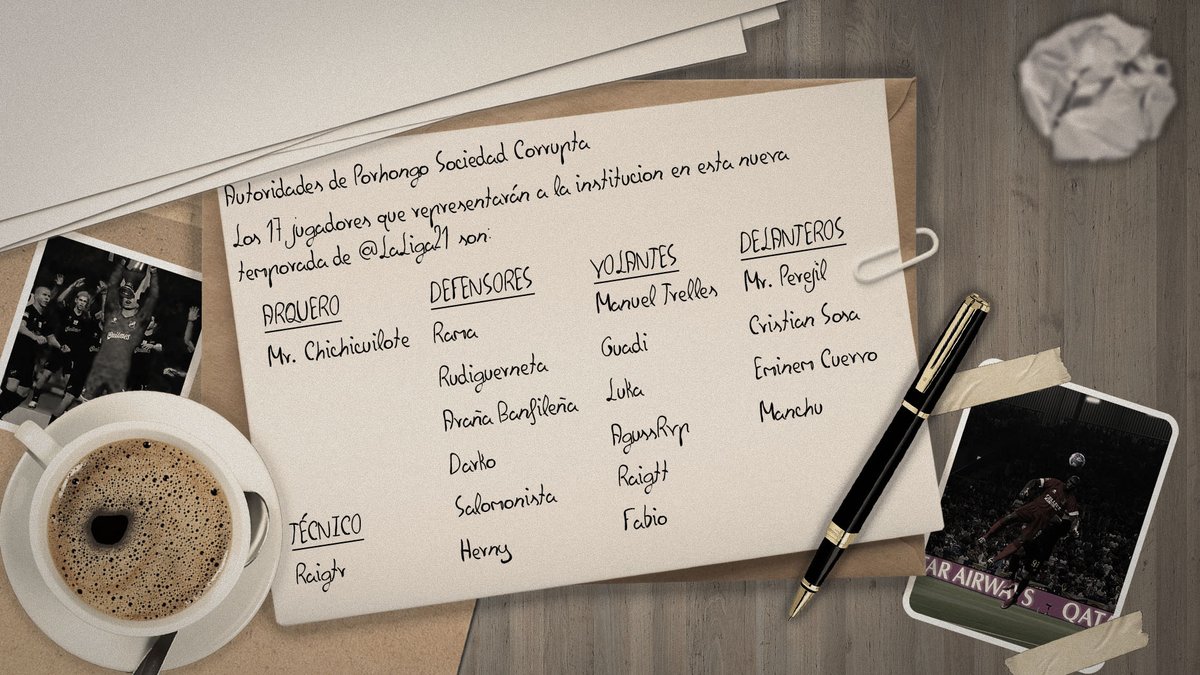 Autoridades de Porhongo Sociedad Corrupta
Los 17 jugadores que representarán a la institucion en esta nueva
temporada de @LaLiga21 son:
ARQUERO
Mr. Chichicuilote
TÉCNICO
Raigtr
DEFENSORES
Rama
Rudiguerneta
Araña Banfileña
Darko
Salomonista
Herny
VOLANTES
Manuel Trelles
Guadi
Luka
AgussRvp
Raigtt
Fabio
DELANTEROS
Mr. Perejil
Cristian Sosa
Eminem Cuervo
Manchu
Quilmes
AR AIRWAYS QATA